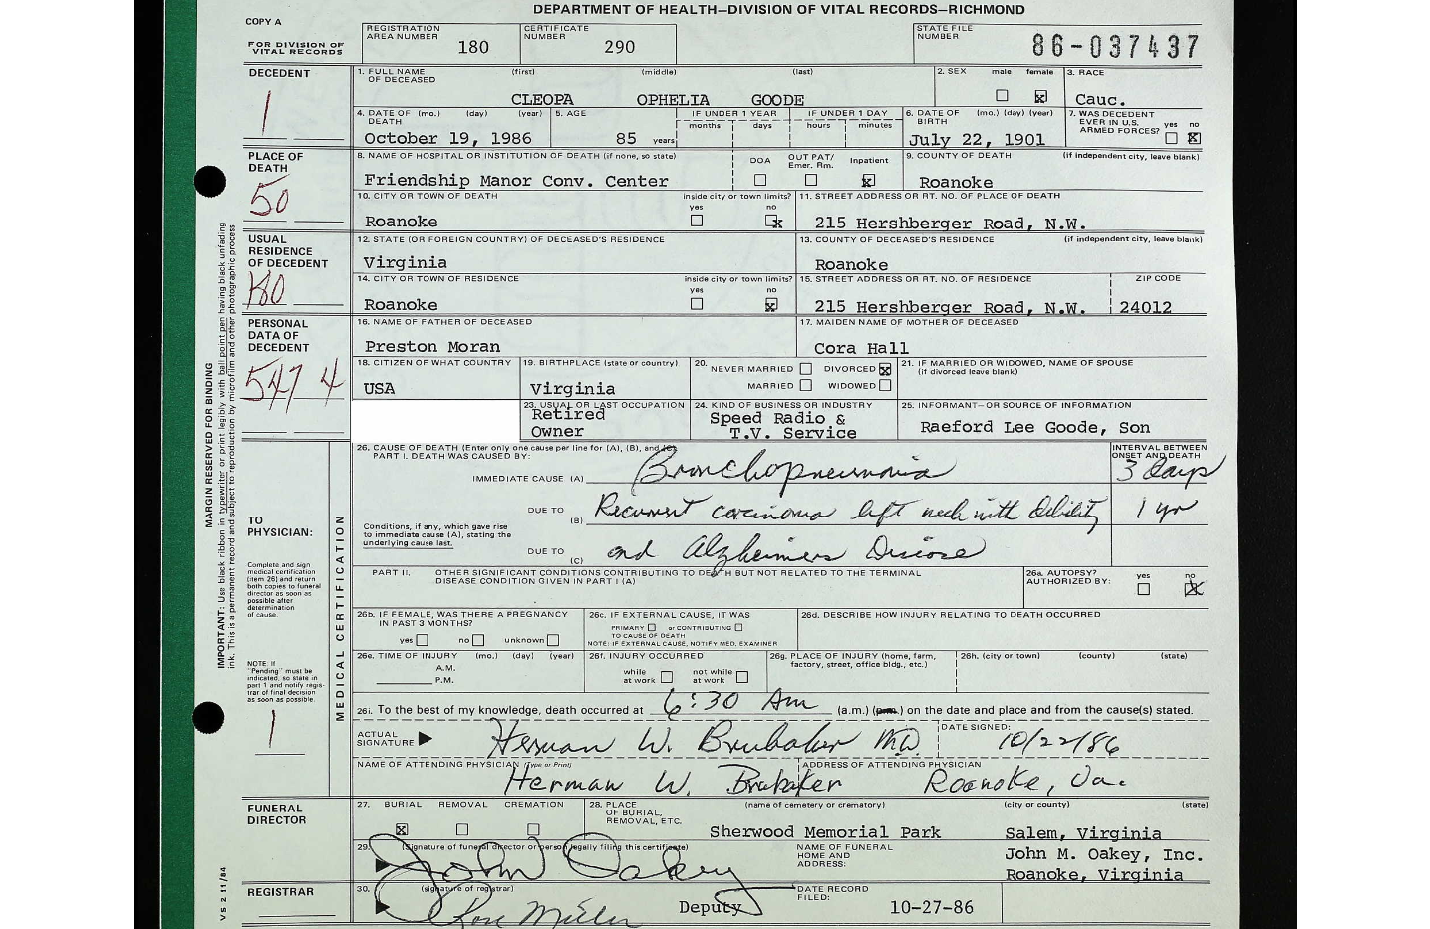 DEPARTMENT OF HEALTH—DIVISION OF VITAL RECORDS—RICHMOND
COPY A
FOR DIVISION OF VITAL RECORDS
REGISTRATION AREA NUMBER 180
CERTIFICATE NUMBER 290
STATE FILE NUMBER 86-037437
DECEDENT
1
1. FULL NAME OF DECEASED (first) (middle) (last)
CLEOPA OPHELIA GOODE
2. SEX male female
3. RACE
Cauc.
4. DATE OF DEATH (mo.) (day) (year)
October 19, 1986
5. AGE
85 years
IF UNDER 1 YEAR
months days
IF UNDER 1 DAY
hours minutes
6. DATE OF BIRTH (mo.) (day) (year)
July 22, 1901
7. WAS DECEDENT EVER IN U.S. ARMED FORCES? yes no
PLACE OF DEATH
50
8. NAME OF HOSPITAL OR INSTITUTION OF DEATH (if none, so state)
Friendship Manor Conv. Center
DOA OUT PAT/ Emer. Rm. Inpatient
9. COUNTY OF DEATH (if independent city, leave blank)
Roanoke
10. CITY OR TOWN OF DEATH inside city or town limits? yes no
Roanoke
11. STREET ADDRESS OR RT. NO. OF PLACE OF DEATH
215 Hershberger Road, N.W.
USUAL RESIDENCE OF DECEDENT
12. STATE (OR FOREIGN COUNTRY) OF DECEASED'S RESIDENCE
Virginia
13. COUNTY OF DECEASED'S RESIDENCE (if independent city, leave blank)
Roanoke
14. CITY OR TOWN OF RESIDENCE inside city or town limits? yes no
Roanoke
15. STREET ADDRESS OR RT. NO. OF RESIDENCE ZIP CODE
215 Hershberger Road, N.W. 24012
PERSONAL DATA OF DECEDENT
547 4
16. NAME OF FATHER OF DECEASED
Preston Moran
17. MAIDEN NAME OF MOTHER OF DECEASED
Cora Hall
18. CITIZEN OF WHAT COUNTRY
USA
19. BIRTHPLACE (state or country)
Virginia
20. NEVER MARRIED DIVORCED
MARRIED WIDOWED
21. IF MARRIED OR WIDOWED, NAME OF SPOUSE
(if divorced leave blank)
23. USUAL OR LAST OCCUPATION
Retired
Owner
24. KIND OF BUSINESS OR INDUSTRY
Speed Radio &
T.V. Service
25. INFORMANT—OR SOURCE OF INFORMATION
Raeford Lee Goode, Son
MARGIN RESERVED FOR BINDING
IMPORTANT: Use black ribbon in typewriter or print legibly with ball point pen having black unfading
ink. This is a permanent record and subject to reproduction by microfilm and other photographic process
TO PHYSICIAN:
Complete and sign
medical certification
(item 26) and return
both copies to funeral
director as soon as
possible after
determination
of cause.
NOTE: If
"Pending" must be
indicated, so state in
part 1 and notify regis-
trar of final decision
as soon as possible.
1
MEDICAL CERTIFICATION
26. CAUSE OF DEATH (Enter only one cause per line for (A), (B), and (C))
PART I. DEATH WAS CAUSED BY:
INTERVAL BETWEEN ONSET AND DEATH
IMMEDIATE CAUSE (A) Bronchopneumonia 3 days
DUE TO (B) Recurrent carcinoma left neck with debility 1 yr
Conditions, if any, which gave rise
to immediate cause (A), stating the
underlying cause last.
DUE TO (C) and Alzheimers Disease
PART II. OTHER SIGNIFICANT CONDITIONS CONTRIBUTING TO DEATH BUT NOT RELATED TO THE TERMINAL
DISEASE CONDITION GIVEN IN PART I (A)
26a. AUTOPSY? AUTHORIZED BY: yes no
26b. IF FEMALE, WAS THERE A PREGNANCY
IN PAST 3 MONTHS?
yes no unknown
26c. IF EXTERNAL CAUSE, IT WAS
PRIMARY or CONTRIBUTING
TO CAUSE OF DEATH
NOTE: IF EXTERNAL CAUSE, NOTIFY MED. EXAMINER
26d. DESCRIBE HOW INJURY RELATING TO DEATH OCCURRED
26e. TIME OF INJURY (mo.) (day) (year)
A.M.
P.M.
26f. INJURY OCCURRED
while at work not while at work
26g. PLACE OF INJURY (home, farm,
factory, street, office bldg., etc.)
26h. (city or town) (county) (state)
26i. To the best of my knowledge, death occurred at 6:30 Am (a.m.) (p.m.) on the date and place and from the cause(s) stated.
ACTUAL SIGNATURE Herman W. Brubaker MD
DATE SIGNED: 10/22/86
NAME OF ATTENDING PHYSICIAN (Type or Print) Herman W. Brubaker
ADDRESS OF ATTENDING PHYSICIAN Roanoke, Va.
FUNERAL DIRECTOR
27. BURIAL REMOVAL CREMATION
28. PLACE OF BURIAL, REMOVAL, ETC. (name of cemetery or crematory) (city or county) (state)
Sherwood Memorial Park Salem, Virginia
29. (signature of funeral director or person legally filing this certificate)
John Oakey
NAME OF FUNERAL HOME AND ADDRESS:
John M. Oakey, Inc.
Roanoke, Virginia
REGISTRAR
30. (signature of registrar)
Deputy
DATE RECORD FILED: 10-27-86
VS 2 11/84